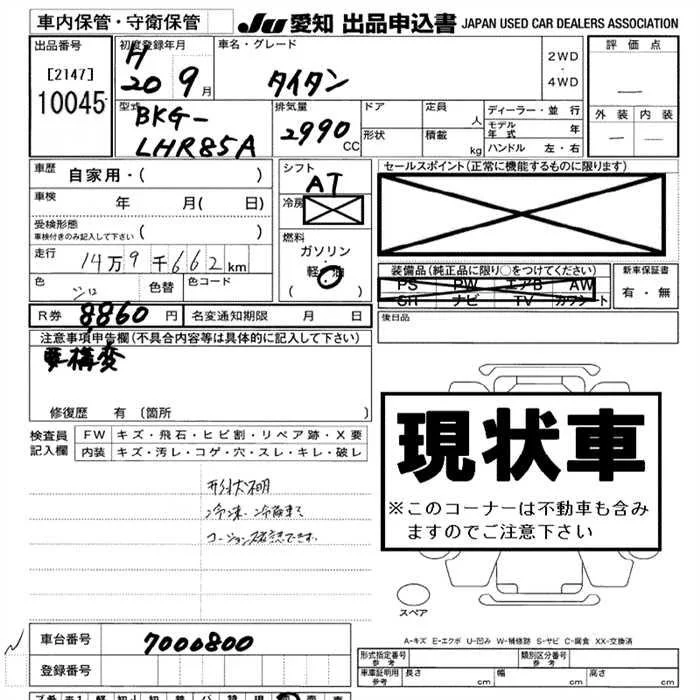 車内保管・守衛保管
JU 愛知 出品申込書 JAPAN USED CAR DEALERS ASSOCIATION
出品番号
[2147]
10045
初度登録年月
H
20 9月
車名・グレード
タイタン
2WD
・
4WD
評価点
—
外装 内装
— —
型式
BKG-
LHR85A
排気量
2990 CC
ドア
形状
定員 人
積載 kg
ディーラー・並行
モデル年式 年
ハンドル 左・右
車歴 自家用・( )
車検 年 月( 日)
受検形態
車検付きのみ記入して下さい ( )
走行 14万9千662km
色 シロ 色替 色コード
シフト
AT
冷房
燃料
ガソリン・
軽油
( )
セールスポイント(正常に機能するものに限ります)
装備品(純正品に限り○をつけてください)
PS PW エアB AW
SR ナビ TV カワシート
新車保証書
有・無
後日品
R券 8,860円 名変通知期限 月 日
注意事項申告欄(不具合内容等は具体的に記入して下さい)
要構変
修復歴 有 〔箇所 〕
検査員
記入欄
FW キズ・飛石・ヒビ割・リペア跡・X要
内装 キズ・汚レ・コゲ・穴・スレ・キレ・破レ
形状不明
現状車
※このコーナーは不動車も含み
ますのでご注意下さい
スペア
A-キズ E-エクボ U-凹み W-補修跡 S-サビ C-腐食 XX-交換済
車台番号 7000800
登録番号
形式指定番号
参考
類別区分番号
参考
車庫証明用
参考
長さ cm 幅 cm 高さ cm